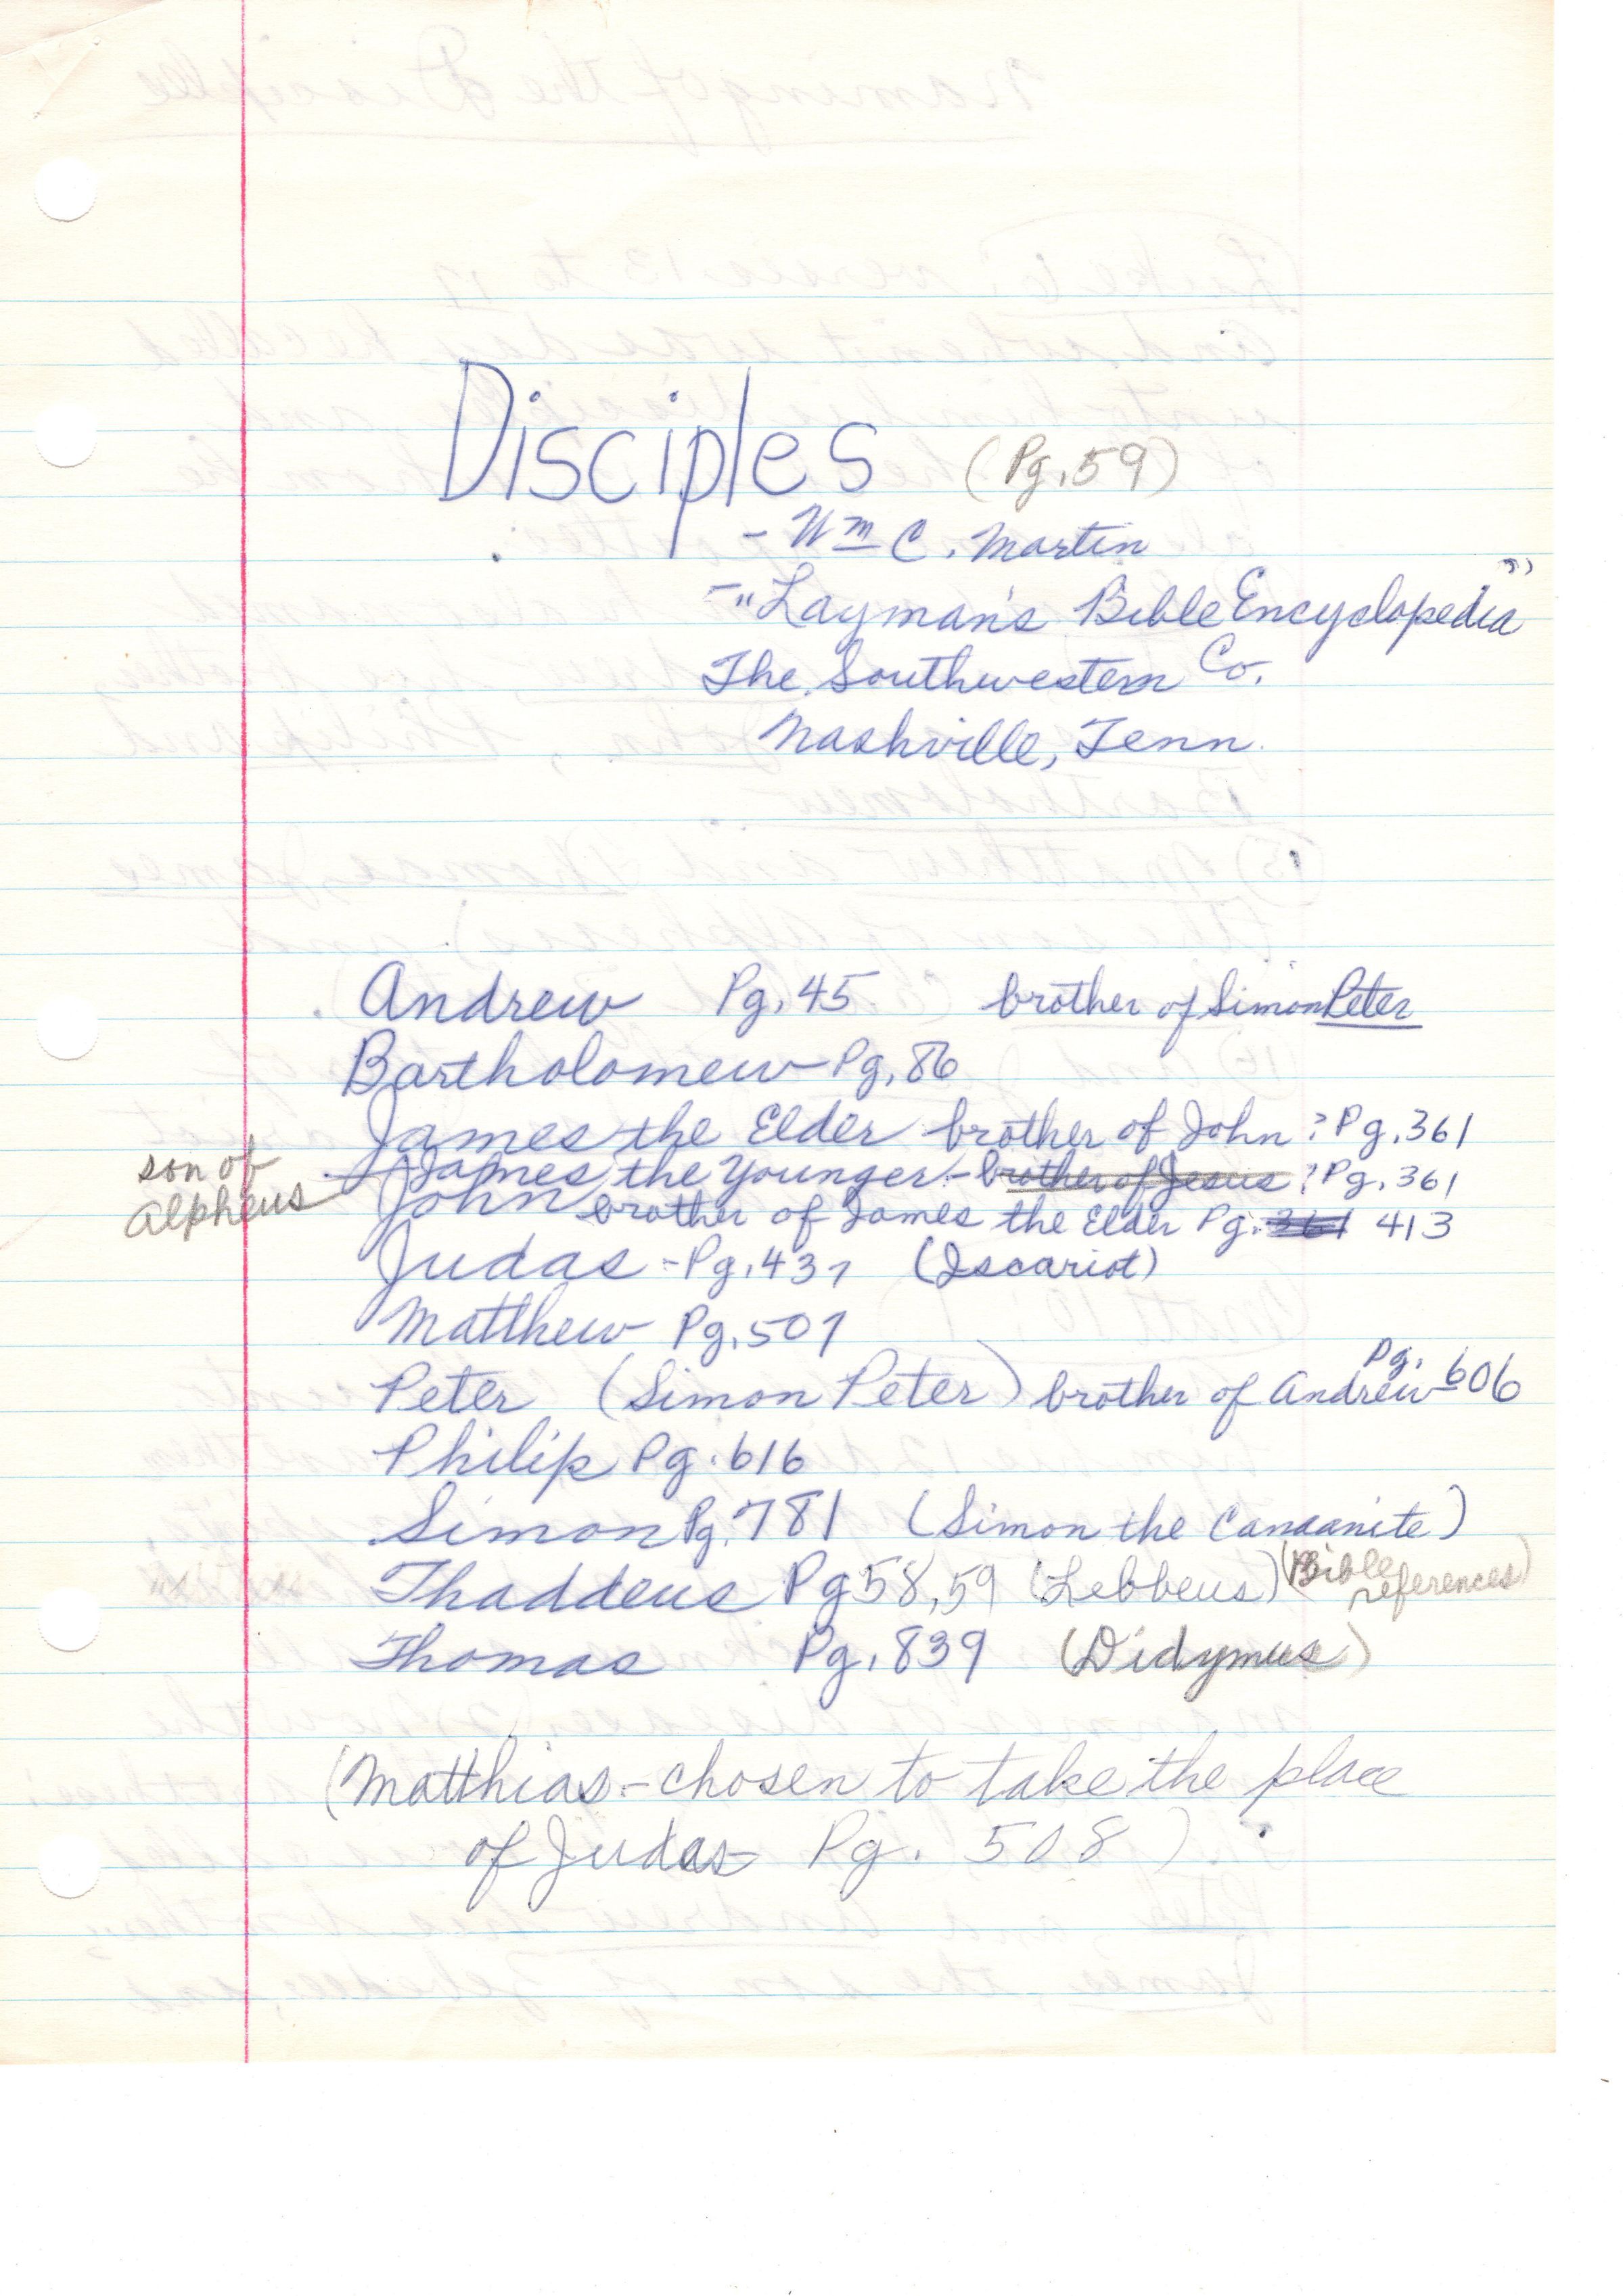 Disciples (Pg. 59)
- Wm C. Martin
- "Layman's Bible Encyclopedia"
The Southwestern Co.
Nashville, Tenn.
Andrew Pg. 45 brother of Simon Peter
Bartholomew - Pg. 86
James the Elder brother of John ? Pg. 361
son of Alpheus James the Younger - brother of Jesus ? Pg. 361
John brother of James the Elder Pg. 361 413
Judas - Pg. 431 (Iscariot)
Matthew Pg. 507
Peter (Simon Peter) brother of Andrew Pg. 606
Philip Pg. 616
Simon Pg. 781 (Simon the Canaanite)
Thaddeus Pg 58, 59 (Lebbeus) (Bible references)
Thomas Pg. 839 (Didymus)
(Matthias - chosen to take the place
of Judas Pg. 508)